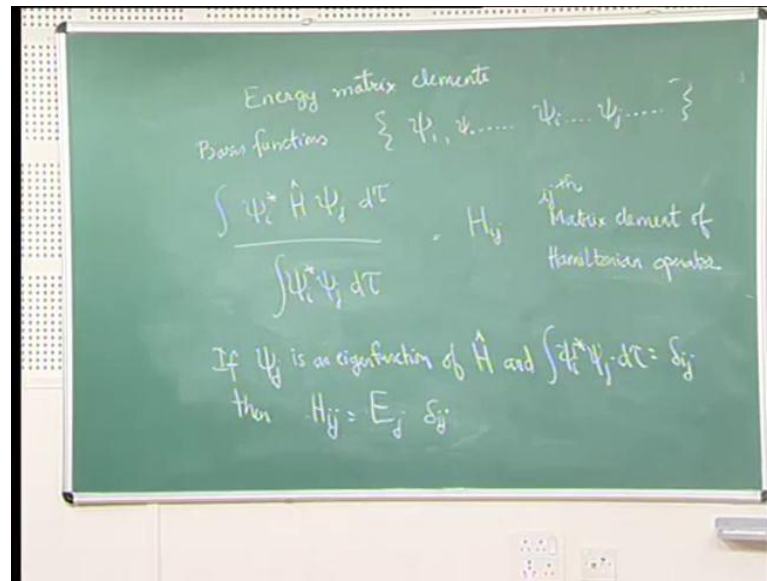 Energy matrix elements
Basis functions { ψ₁, ψ...... ψᵢ.... ψⱼ..... }
∫ ψᵢ* Ĥ ψⱼ dτ / ∫ψᵢ*ψⱼ dτ = Hᵢⱼ ijᵗʰ Matrix element of
Hamiltonian operator
If ψⱼ is an eigenfunction of Ĥ and ∫ψᵢ*ψⱼ dτ = δᵢⱼ
then Hᵢⱼ = Eⱼ δᵢⱼ